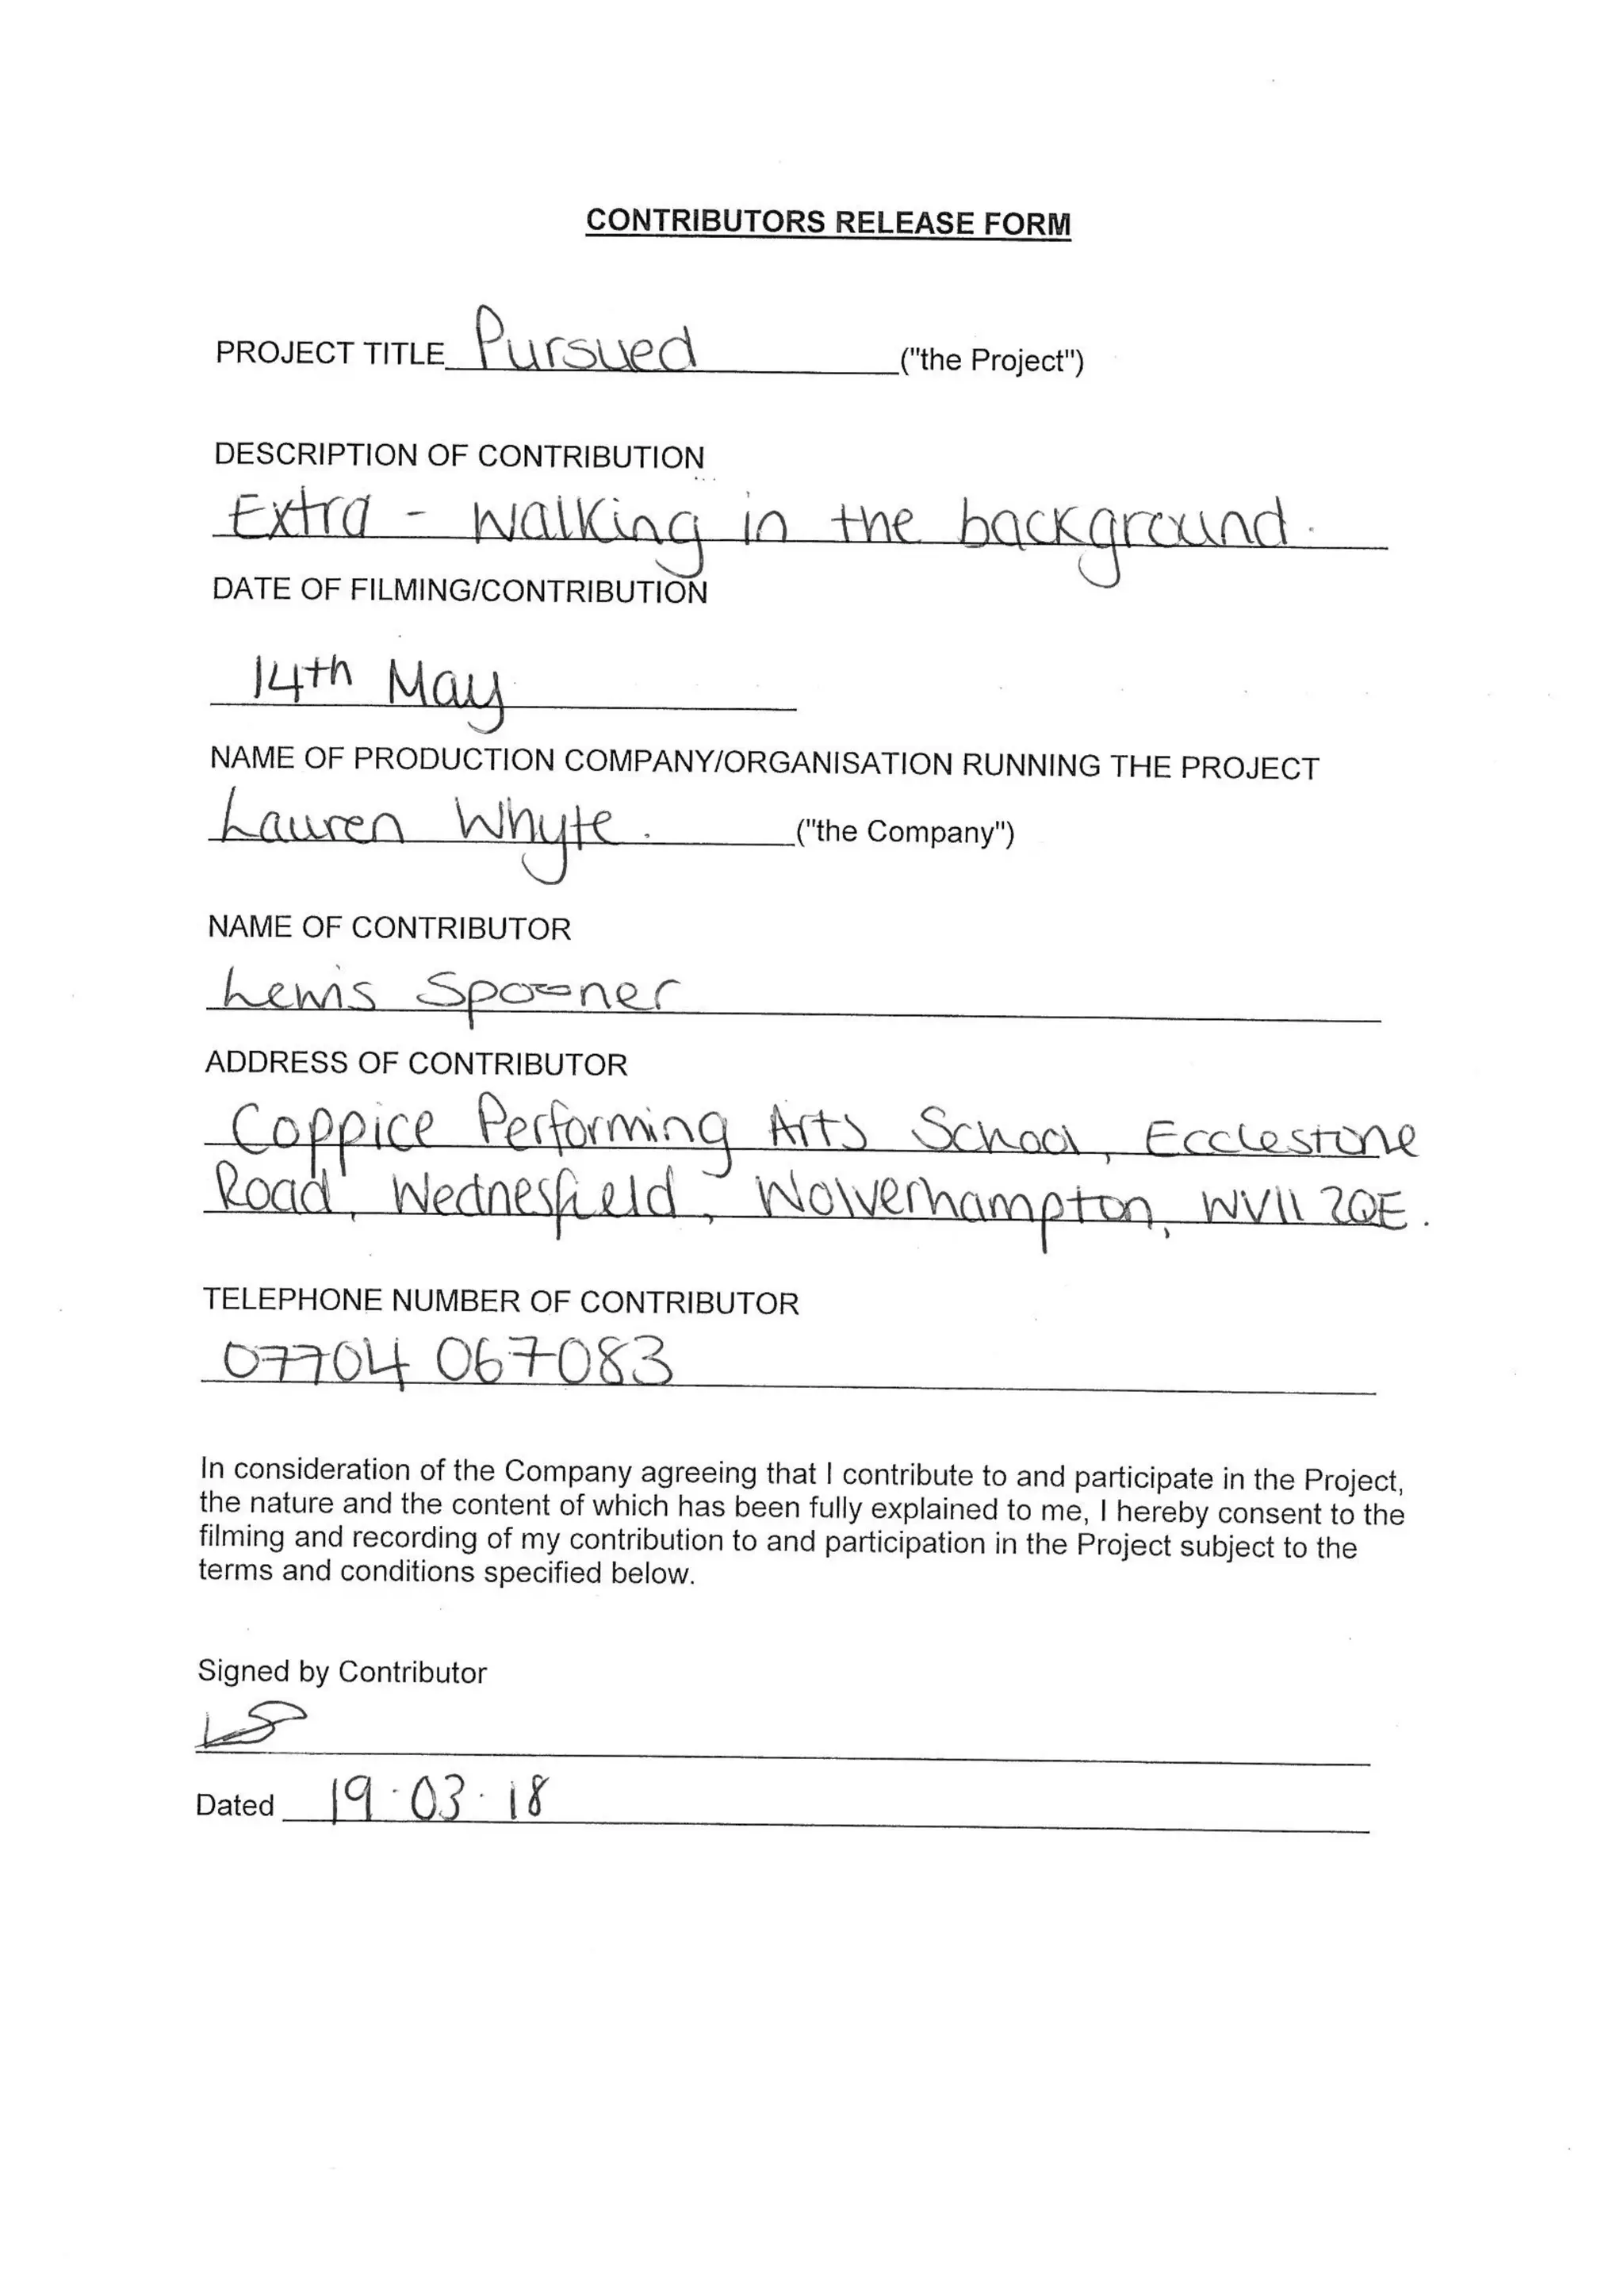 CONTRIBUTORS RELEASE FORM
PROJECT TITLE Pursued ("the Project")
DESCRIPTION OF CONTRIBUTION
Extra - walking in the background.
DATE OF FILMING/CONTRIBUTION
14th May
NAME OF PRODUCTION COMPANY/ORGANISATION RUNNING THE PROJECT
Lauren Whyte. ("the Company")
NAME OF CONTRIBUTOR
Lewis Spooner
ADDRESS OF CONTRIBUTOR
Coppice Performing Arts School, Ecclestone
Road, Wednesfield, Wolverhampton, WV11 2QE.
TELEPHONE NUMBER OF CONTRIBUTOR
07704 067083
In consideration of the Company agreeing that I contribute to and participate in the Project,
the nature and the content of which has been fully explained to me, I hereby consent to the
filming and recording of my contribution to and participation in the Project subject to the
terms and conditions specified below.
Signed by Contributor
LS
Dated 19.03.18